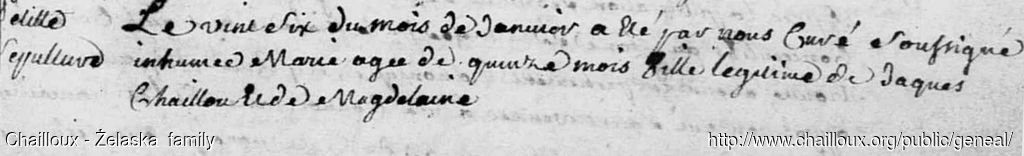 petitte Le vint & six du mois de Janvier a été par nous Curé soussigné
sepulture inhumée Marie agee de quinze mois fille legitime de Jaques
Chaillou et de Magdelaine
Chailloux - Żelaska family http://www.chailloux.org/public/geneal/